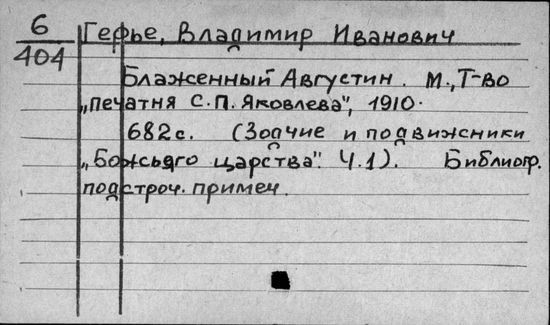 6
404
Герье, Владимир Иванович
Блаженный Августин. М., Т-во
„печатня С.П. Яковлева", 1910.
682 с. (Зодчие и подвижники
„Божьяго царства". Ч.1). Библиогр.
подстроч. примеч.